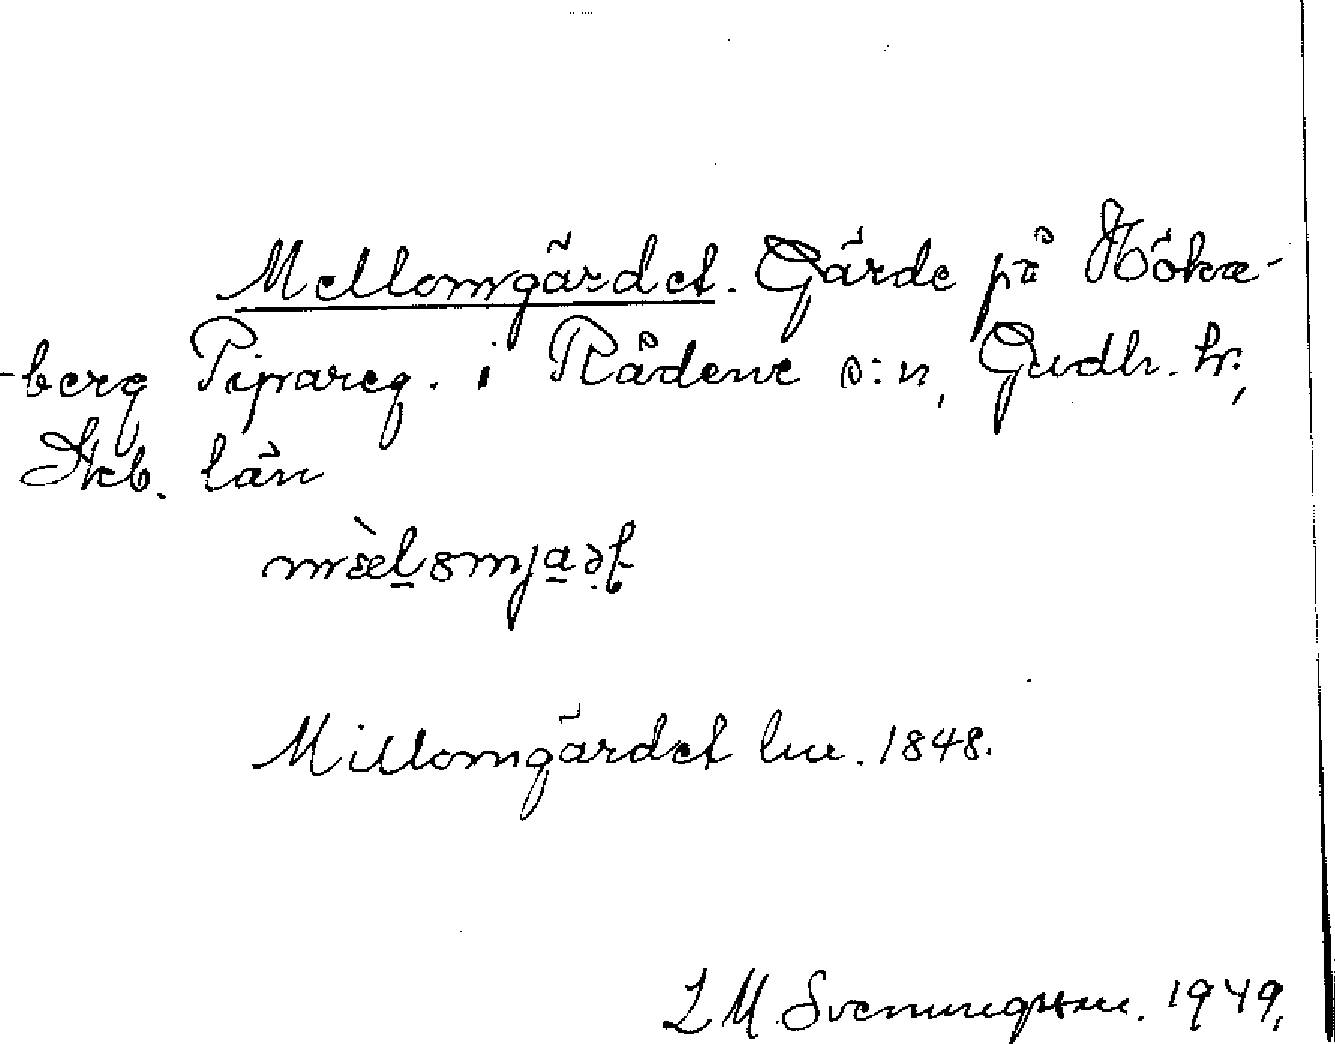 Mellomgärdet. Gärde på Höka-
-berg Pipareg. i Rådene s:n, Gudh. hr.,
Skb. län
Millomgärdet lm. 1848.
L M. Svenungsson. 1949.